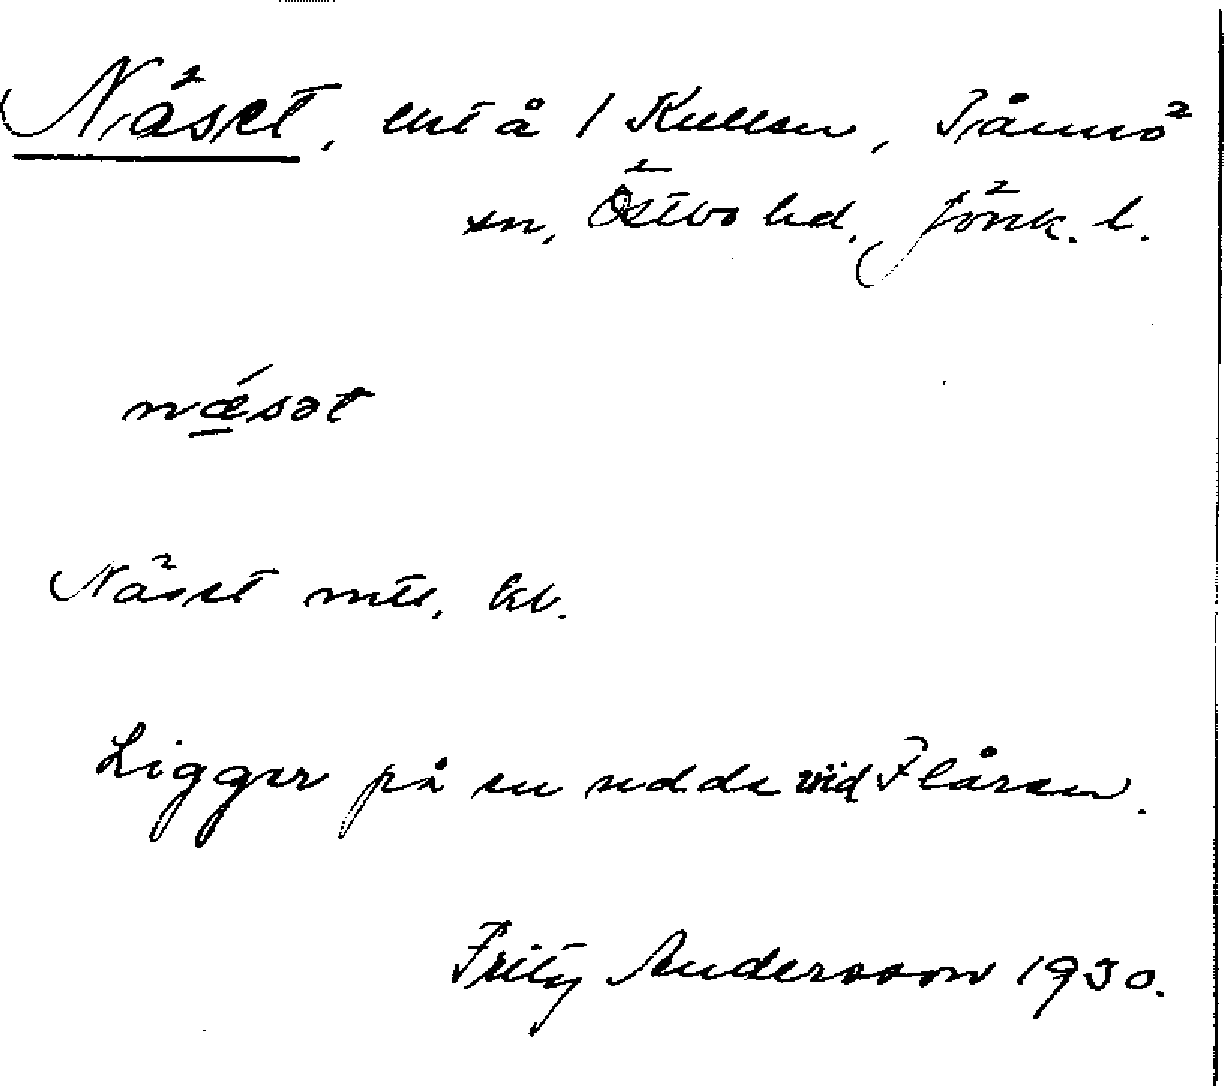 Näset, lht å 1 Kullen, Tånnö
sn, Östbo hd. Jönk. l.
næ´sət
Näset mtl. kl.
Ligger på en udde vid Flåren.
Fritz Andersson 1930.